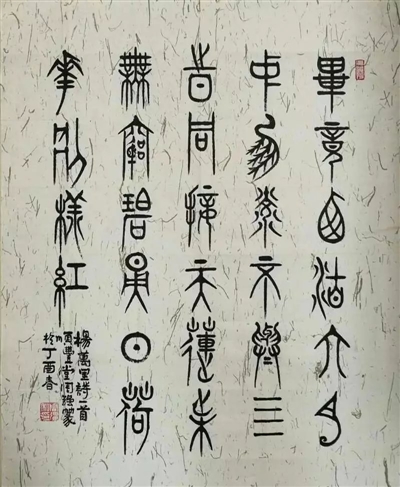 畢竟西湖六月
中風光不與四
時同接天蓮葉
無窮碧映日荷
花別樣紅
楊萬里詩一首
堂篆
於丁酉春